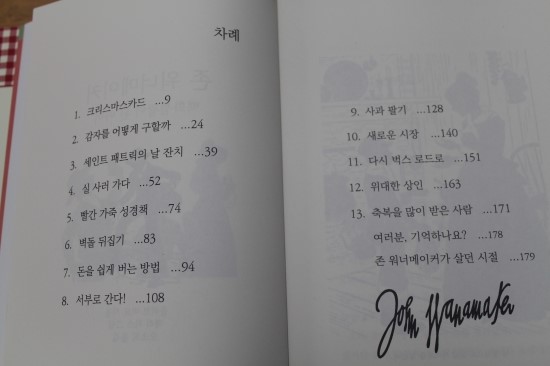 차례
1. 크리스마스카드 ...9
2. 감자를 어떻게 구할까 ...24
3. 세인트 패트릭의 날 잔치 ...39
4. 실 사러 가다 ...52
5. 빨간 가죽 성경책 ...74
6. 벽돌 뒤집기 ...83
7. 돈을 쉽게 버는 방법 ...94
8. 서부로 간다! ...108
9. 사과 팔기 ...128
10. 새로운 시장 ...140
11. 다시 벅스 로드로 ...151
12. 위대한 상인 ...163
13. 축복을 많이 받은 사람 ...171
여러분, 기억하나요? ...178
존 워너메이커가 살던 시절 ...179
John Wanamaker